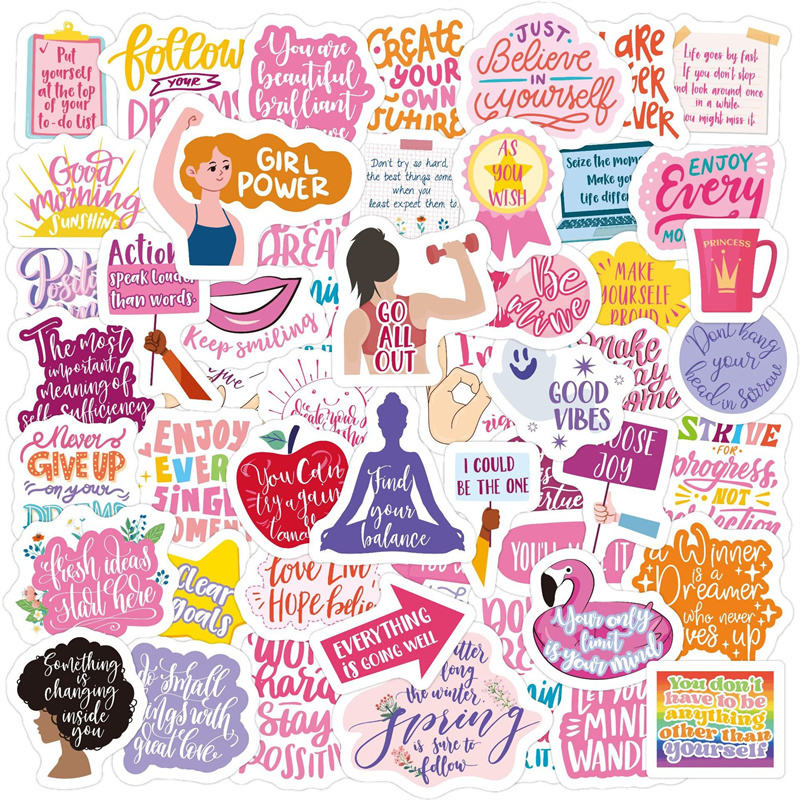 Put
yourself
at the top
of your
to-do list
follow
YOUR
DREAMS
You are
beautiful
brilliant
CREATE
YOUR
OWN
FUTURE
JUST
Believe
IN
yourself
Life goes by fast.
If you don't stop
and look around once
in a while.
You might miss it.
Good
morning
SUNSHINE
GIRL
POWER
Don't try so hard,
the best things come
when you
least expect them to.
AS
YOU
WISH
Seize the mom
Make you
Life differ
ENJOY
Every
MO
PRINCESS
Positi
Action
speak louder
than words.
DREAM
keep smiling
GO
ALL
OUT
Be
mine
MAKE
YOURSELF
PROUD
The most
important
meaning of
self-sufficiency
give
create your
GOOD
VIBES
make
ay
ome
Dont hang
your
head in sorrow
Never
GIVE UP
on your
DREAMS
ENJOY
EVER
SINGL
MOMENT
You Can
try again
Find
your
balance
I COULD
BE THE ONE
CHOOSE
JOY
STRIVE
FOR
progress,
NOT
fresh ideas
start here
Clear
Goals
love Live
HOPE belie
EVERYTHING
IS GOING WELL
Your only
limit
is your mind
a Winner
is a
Dreamer
who never
ves up
Something
is
changing
inside
you
Do Small
ings with
great love
Work
hard
Stay
POSITIV
long
the winter,
Spring
is sure to
follow
LET YOU
MIND
WANDE
You don't
have to be
anything
other than
yourself